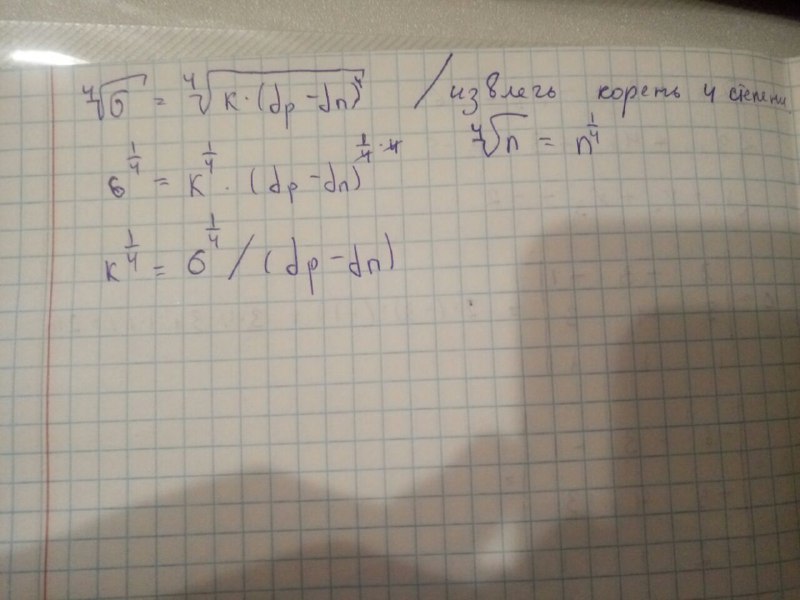 ⁴√σ = ⁴√(k·(dp-dn)⁴) / извлечь корень 4 степени
⁴√n = n^(1/4)
σ^(1/4) = k^(1/4) · (dp-dn)^(1/4·4)
k^(1/4) = σ^(1/4) / (dp-dn)